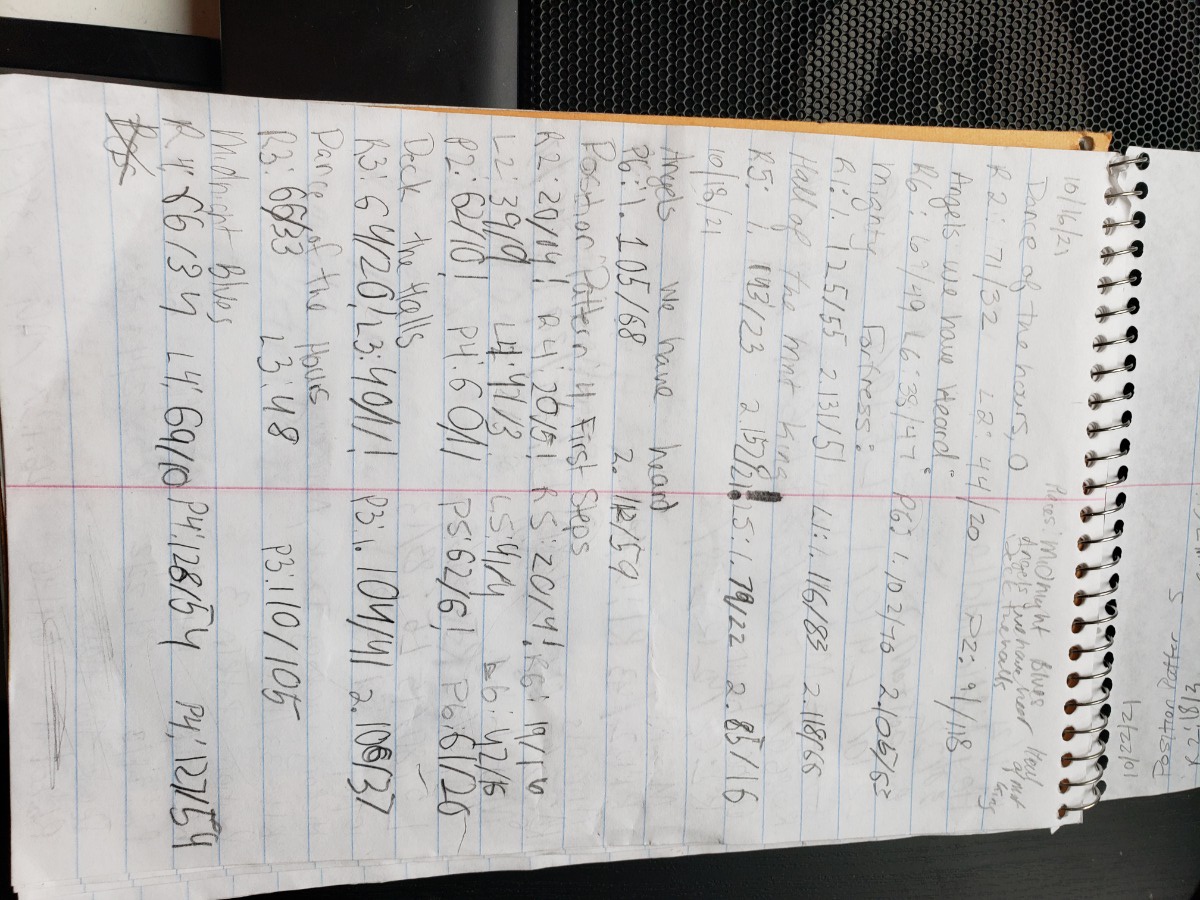 5
x 8/13
Position Patter
12/22/01
10/16/21
Dance of the hours, 0
Midnight Blues
Angels we have hear Hall
Deck the halls
R2: 71/32 L2: 44/20 P2: 91/118
Angels we have Heard:
R6: 69/49 L6: 38/47 P6: 1. 102/70 2. 105/65
Mighty Fortress:
R1: 1. 125/55 2. 131/51 L1: 1. 116/83 2. 118/65
Hall of the mnt King
R5: 1. 143/23 2. 157/21 L5: 1. 79/22 2. 85/16
10/18/21
Angels we have heard
P6: 1. 105/68 2. 112/59
Position Patter 4 First Steps
R2: 20/14! R4: 20/5! R5: 20/4! R6: 19/16
L2: 39/0 L4: 41/3 L5: 41/4 L6: 42/16
P2: 62/10! P4: 60/1 P5: 62/6! P6: 61/25
Deck the Halls
R3: 64/20! L3: 40/11 P3: 1. 104/41 2. 106/37
Dance of the Hours
R3: 65/33 L3: 48 P3: 110/105
Midnight Blues
R4: 66/34 L4: 69/10 P4: 128/54 P4: 127/54